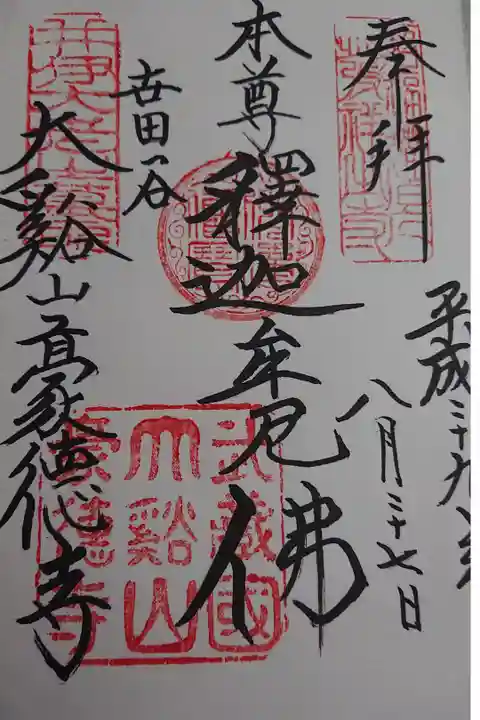 奉拝
平成二十九年
八月二十七日
本尊
釋迦牟尼佛
世田谷
大谿山豪德寺
武藏國
大谿山
豪德寺